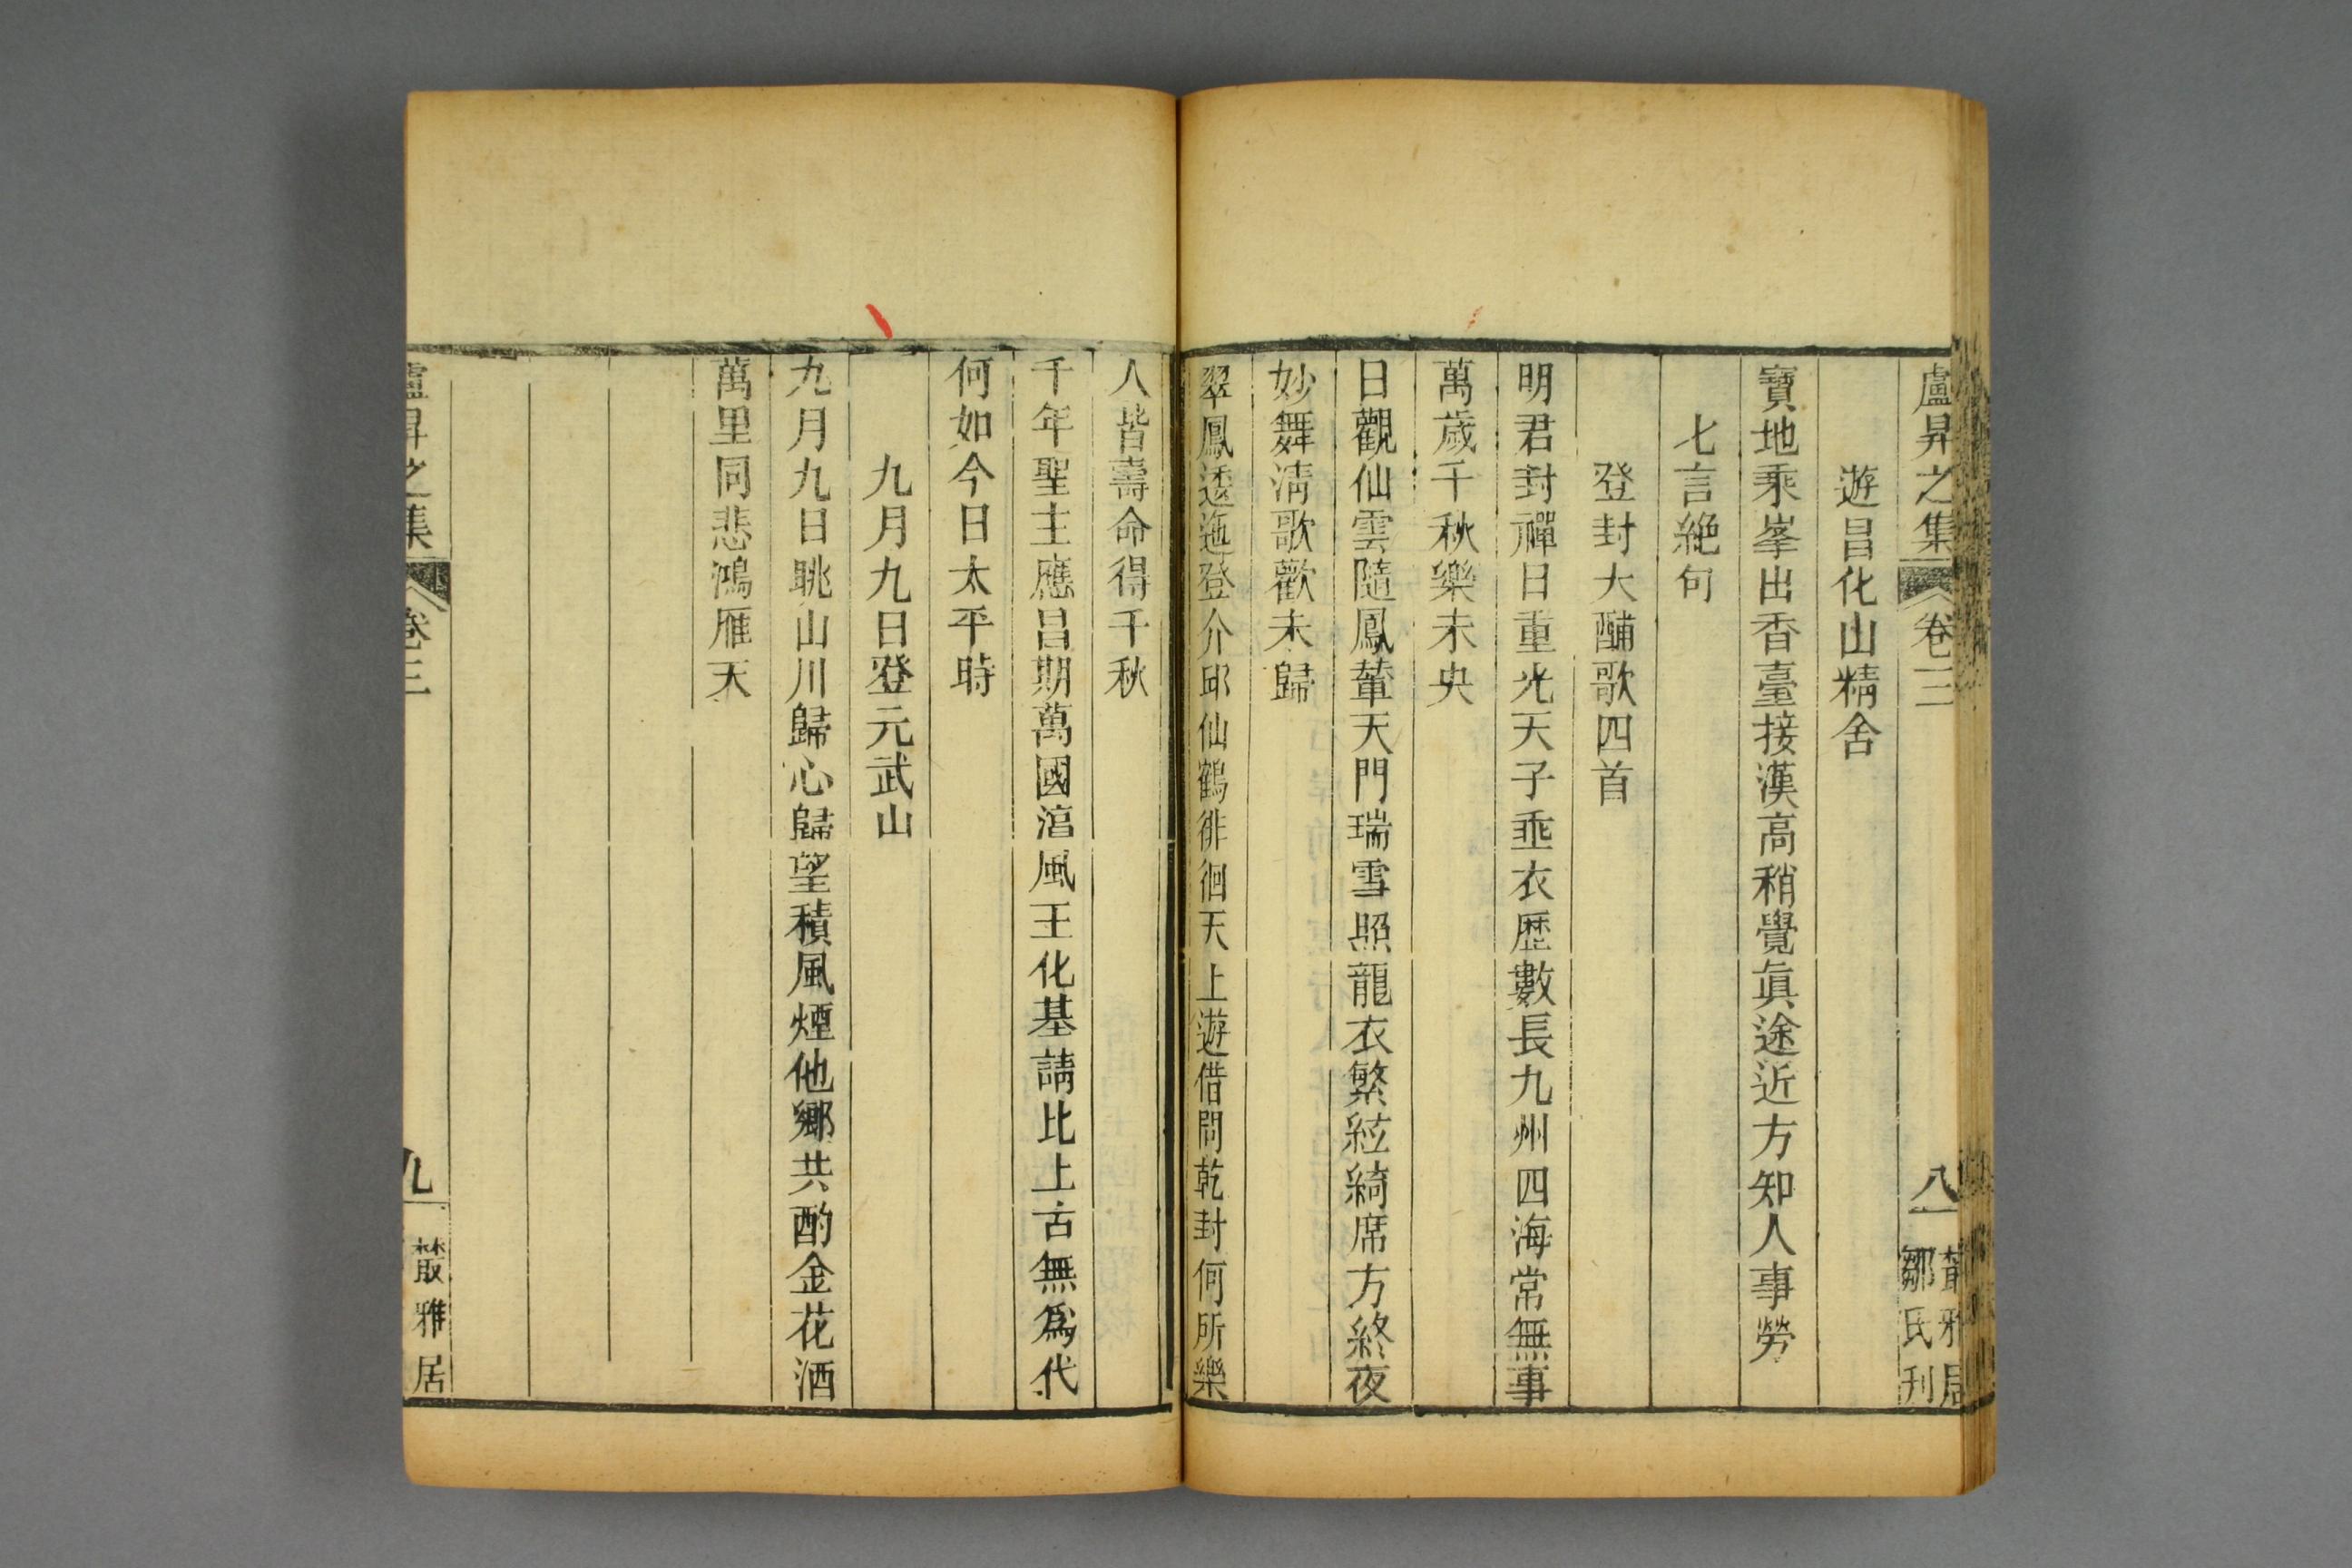 盧昇之集 卷三 八 叢雅居 鄒氏刊
遊昌化山精舍
寶地乘峯出香臺接漢高稍覺眞途近方知人事勞
七言絶句
登封大酺歌四首
明君封禪日重光天子垂衣歷數長九州四海常無事
萬歲千秋樂未央
日觀仙雲隨鳳輦天門瑞雪照龍衣繁絃綺席方終夜
妙舞淸歌歡未歸
翠鳳逶迤登介邱仙鶴徘徊天上遊借問乾封何所樂
人皆壽命得千秋
千年聖主應昌期萬國淳風王化基請比上古無爲代
何如今日太平時
九月九日登元武山
九月九日眺山川歸心歸望積風煙他鄉共酌金花酒
萬里同悲鴻雁天
盧昇之集 卷三 九 叢雅居